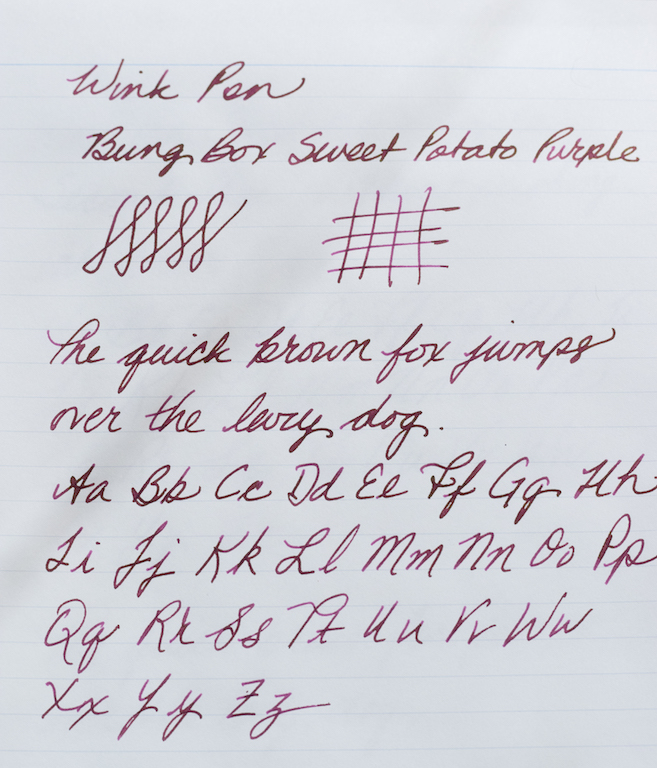 Wink Pen
Bung Box Sweet Potato Purple
The quick brown fox jumps
over the lazy dog.
Aa Bb Cc Dd Ee Ff Gg Hh
Ii Jj Kk Ll Mm Nn Oo Pp
Qq Rr Ss Tt Uu Vv Ww
Xx Yy Zz